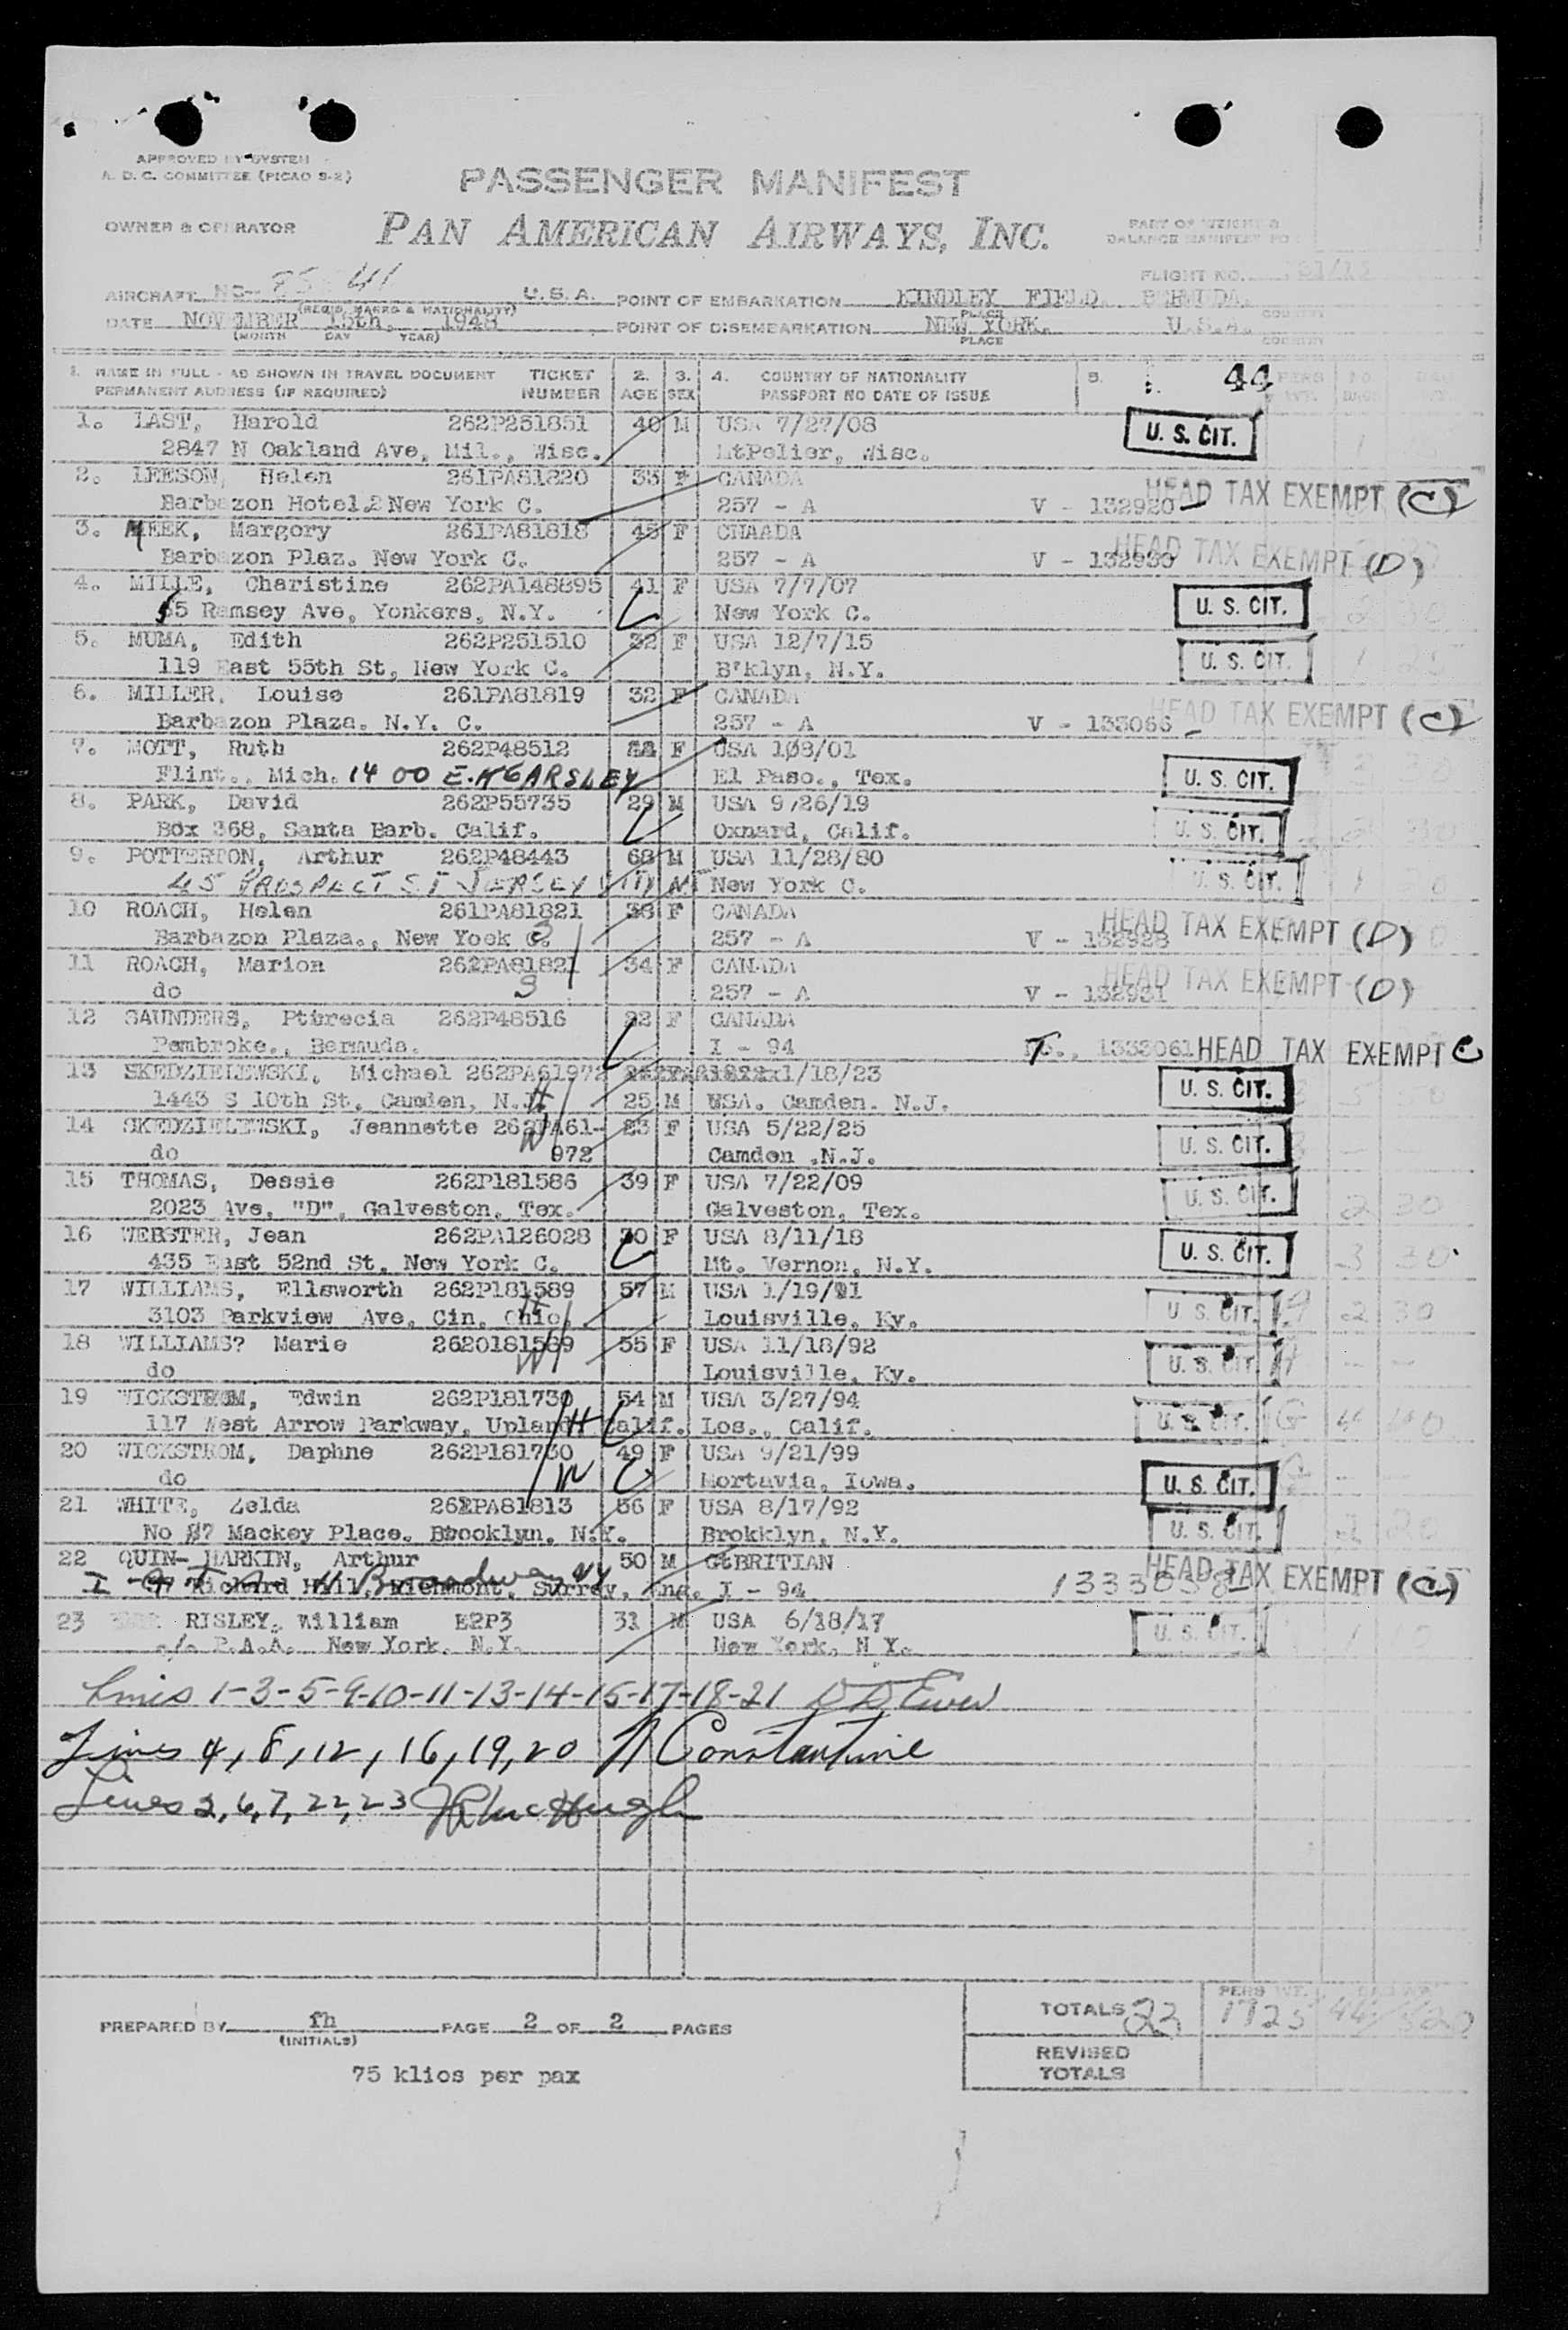 APPROVED BY SYSTEM
A. D. C. COMMITTEE (PICAO S-2)
PASSENGER MANIFEST
OWNER & OPERATOR PAN AMERICAN AIRWAYS, INC. PART OF WEIGHT &
BALANCE MANIFEST
FLIGHT NO.
AIRCRAFT NC- 41 U.S.A. POINT OF EMBARKATION KINDLEY FIELD. BERMUDA.
(REGIS. MARKS & NATIONALITY) PLACE COUNTRY
DATE NOVEMBER 15th, 1948 POINT OF DISEMBARKATION NEW YORK. U.S.A.
(MONTH DAY YEAR) PLACE COUNTRY
1. NAME IN FULL - AS SHOWN IN TRAVEL DOCUMENT TICKET 2. 3. 4. COUNTRY OF NATIONALITY 5. 44 PERS
PERMANENT ADDRESS (IF REQUIRED) NUMBER AGE SEX PASSPORT NO DATE OF ISSUE
1. LAST, Harold 262P251851 40 M USA 7/27/08 U. S. CIT.
2847 N Oakland Ave, Mil., Wisc. MtPelier, Wisc.
2. LEESON, Helen 261PA81820 33 F CANADA HEAD TAX EXEMPT (C)
Barbazon Hotel, New York C. 257 - A V - 132920
3. MEEK, Margory 261PA81818 45 F CNAADA HEAD TAX EXEMPT (D)
Barbazon Plaz. New York C. 257 - A V - 132930
4. MILLE, Charistine 262PA148895 41 F USA 7/7/07 U. S. CIT.
55 Ramsey Ave, Yonkers, N.Y. New York C.
5. MUMA, Edith 262P251510 32 F USA 12/7/15 U. S. CIT.
119 East 55th St, New York C. B'klyn, N.Y.
6. MILLER, Louise 261PA81819 32 F CANADA HEAD TAX EXEMPT (C)
Barbazon Plaza. N.Y. C. 257 - A V - 133066
7. MOTT, Ruth 262P48512 F USA 10/8/01 U. S. CIT.
Flint., Mich. 1400 E. KEARSLEY El Paso., Tex.
8. PARK, David 262P55735 29 M USA 9/26/19 U. S. CIT.
Box 368, Santa Barb. Calif. Oxnard, Calif.
9. POTTERTON, Arthur 262P48443 68 M USA 11/28/80 U. S. CIT.
45 PROSPECT ST JERSEY CITY NJ New York C.
10 ROACH, Helen 261PA81821 38 F CANADA HEAD TAX EXEMPT (D)
Barbazon Plaza., New Yook C. 257 - A V - 132928
11 ROACH, Marion 261PA81821 34 F CANADA HEAD TAX EXEMPT (D)
do 257 - A V - 132931
12 SAUNDERS, Pturecia 262P48516 22 F CANADA
Pembroke., Bermuda. I - 94 1333061 HEAD TAX EXEMPT C
13 SKEDZIELEWSKI, Michael 262PA61972 1/18/23 U. S. CIT.
1443 S 10th St. Camden, N.J. 25 M USA. Camden. N.J.
14 SKEDZIELEWSKI, Jeannette 262PA61- 23 F USA 5/22/25 U. S. CIT.
do 972 Camden .N.J.
15 THOMAS, Dessie 262P181586 39 F USA 7/22/09 U. S. CIT.
2023 Ave, "D", Galveston, Tex. Galveston, Tex. 2 30
16 WEBSTER, Jean 262PA126028 30 F USA 8/11/18 U. S. CIT.
435 East 52nd St, New York C. Mt. Vernon, N.Y. 3 30
17 WILLIAMS, Ellsworth 262P181589 57 M USA 1/19/91 U. S. CIT. 2 30
3103 Parkview Ave, Cin, Ohio Louisville, Ky.
18 WILLIAMS? Marie 2620181589 55 F USA 11/18/92 U. S. CIT. - -
do Louisville, Ky.
19 WICKSTROM, Edwin 262P181730 54 M USA 3/27/94 U. S. CIT. G 4 40
117 West Arrow Parkway, Upland Calif. Los., Calif.
20 WICKSTROM, Daphne 262P181730 49 F USA 9/21/99
do Mortavia, Iowa. U. S. CIT. - -
21 WHITE, Zelda 261PA81813 56 F USA 8/17/92 U. S. CIT.
No 87 Mackey Place. Brooklyn, N.Y. Brokklyn, N.Y.
22 QUIN- HARKIN, Arthur 50 M GtBRITIAN HEAD TAX EXEMPT (C)
Richard Hill, Richmont, Surrey, Eng. I - 94 1333058
Broadway NY
23 RISLEY, William E2P3 31 M USA 6/18/17 U. S. CIT.
c/o P.A.A. New York. N.Y. New York, N Y.
Lines 1-3-5-9-10-11-13-14-15-17-18-21
Lines 4, 8, 12, 16, 19, 20 Constantine
Lines 2, 6, 7, 22, 23 McHugh
PREPARED BY fh PAGE 2 OF 2 PAGES
(INITIALS)
TOTALS 23 1725 44
REVISED
TOTALS
75 klios per pax